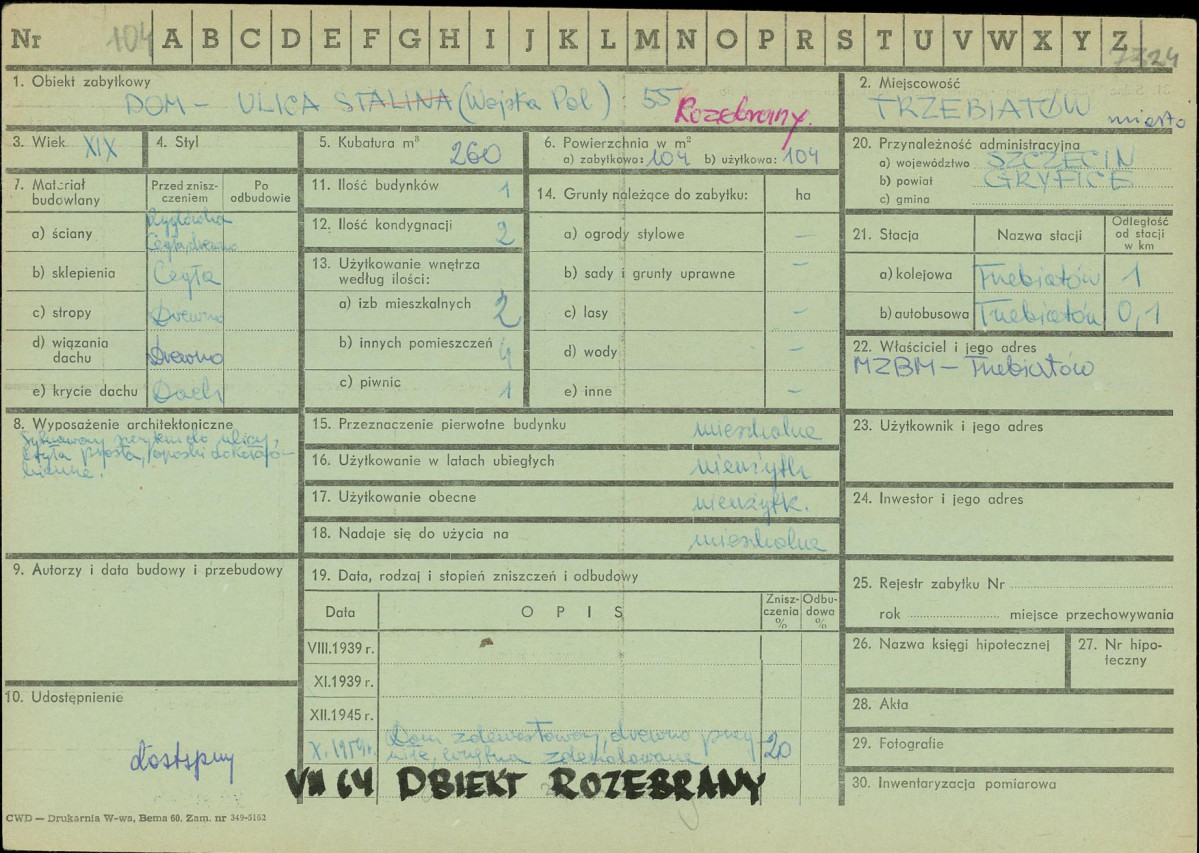 Nr 104 A B C D E F G H I J K L M N O P R S T U V W X Y Z
7324
1. Obiekt zabytkowy
DOM - ULICA STALINA (Wojska Pol) 55
Rozebrany.
2. Miejscowość
TRZEBIATÓW miasto
3. Wiek XIX
4. Styl
5. Kubatura m³ 260
6. Powierzchnia w m²
a) zabytkowa: 104 b) użytkowa: 104
20. Przynależność administracyjna
a) województwo SZCZECIN
b) powiat GRYFICE
c) gmina
7. Materiał budowlany
Przed zniszczeniem
Po odbudowie
a) ściany Ryglówka
Cegła, drewno
b) sklepienia Cegła
c) stropy Drewno
d) wiązania dachu Drewno
e) krycie dachu Dach
11. Ilość budynków 1
12. Ilość kondygnacji 2
13. Użytkowanie wnętrza według ilości:
a) izb mieszkalnych 2
b) innych pomieszczeń 4
c) piwnic 1
14. Grunty należące do zabytku: ha
a) ogrody stylowe –
b) sady i grunty uprawne –
c) lasy –
d) wody –
e) inne –
21. Stacja
Nazwa stacji
Odległość od stacji w km
a) kolejowa Trzebiatów 1
b) autobusowa Trzebiatów 0,1
22. Właściciel i jego adres
MZBM - Trzebiatów
8. Wyposażenie architektoniczne
do ulicy,
prosta,
15. Przeznaczenie pierwotne budynku mieszkalne
16. Użytkowanie w latach ubiegłych nieużytk
17. Użytkowanie obecne nieużytk.
18. Nadaje się do użycia na mieszkalne
23. Użytkownik i jego adres
24. Inwestor i jego adres
9. Autorzy i data budowy i przebudowy
19. Data, rodzaj i stopień zniszczeń i odbudowy
Data
OPIS
Zniszczenia %
Odbudowa %
VIII.1939 r.
XI.1939 r.
XII.1945 r.
X.1959r. Dom zdewastowany, drewno
zdemolowane 20
VII 64 OBIEKT ROZEBRANY
25. Rejestr zabytku Nr
rok miejsce przechowywania
26. Nazwa księgi hipotecznej
27. Nr hipoteczny
28. Akta
29. Fotografie
30. Inwentaryzacja pomiarowa
10. Udostępnienie
dostępny
CWD — Drukarnia W-wa, Bema 60. Zam. nr 349-5162